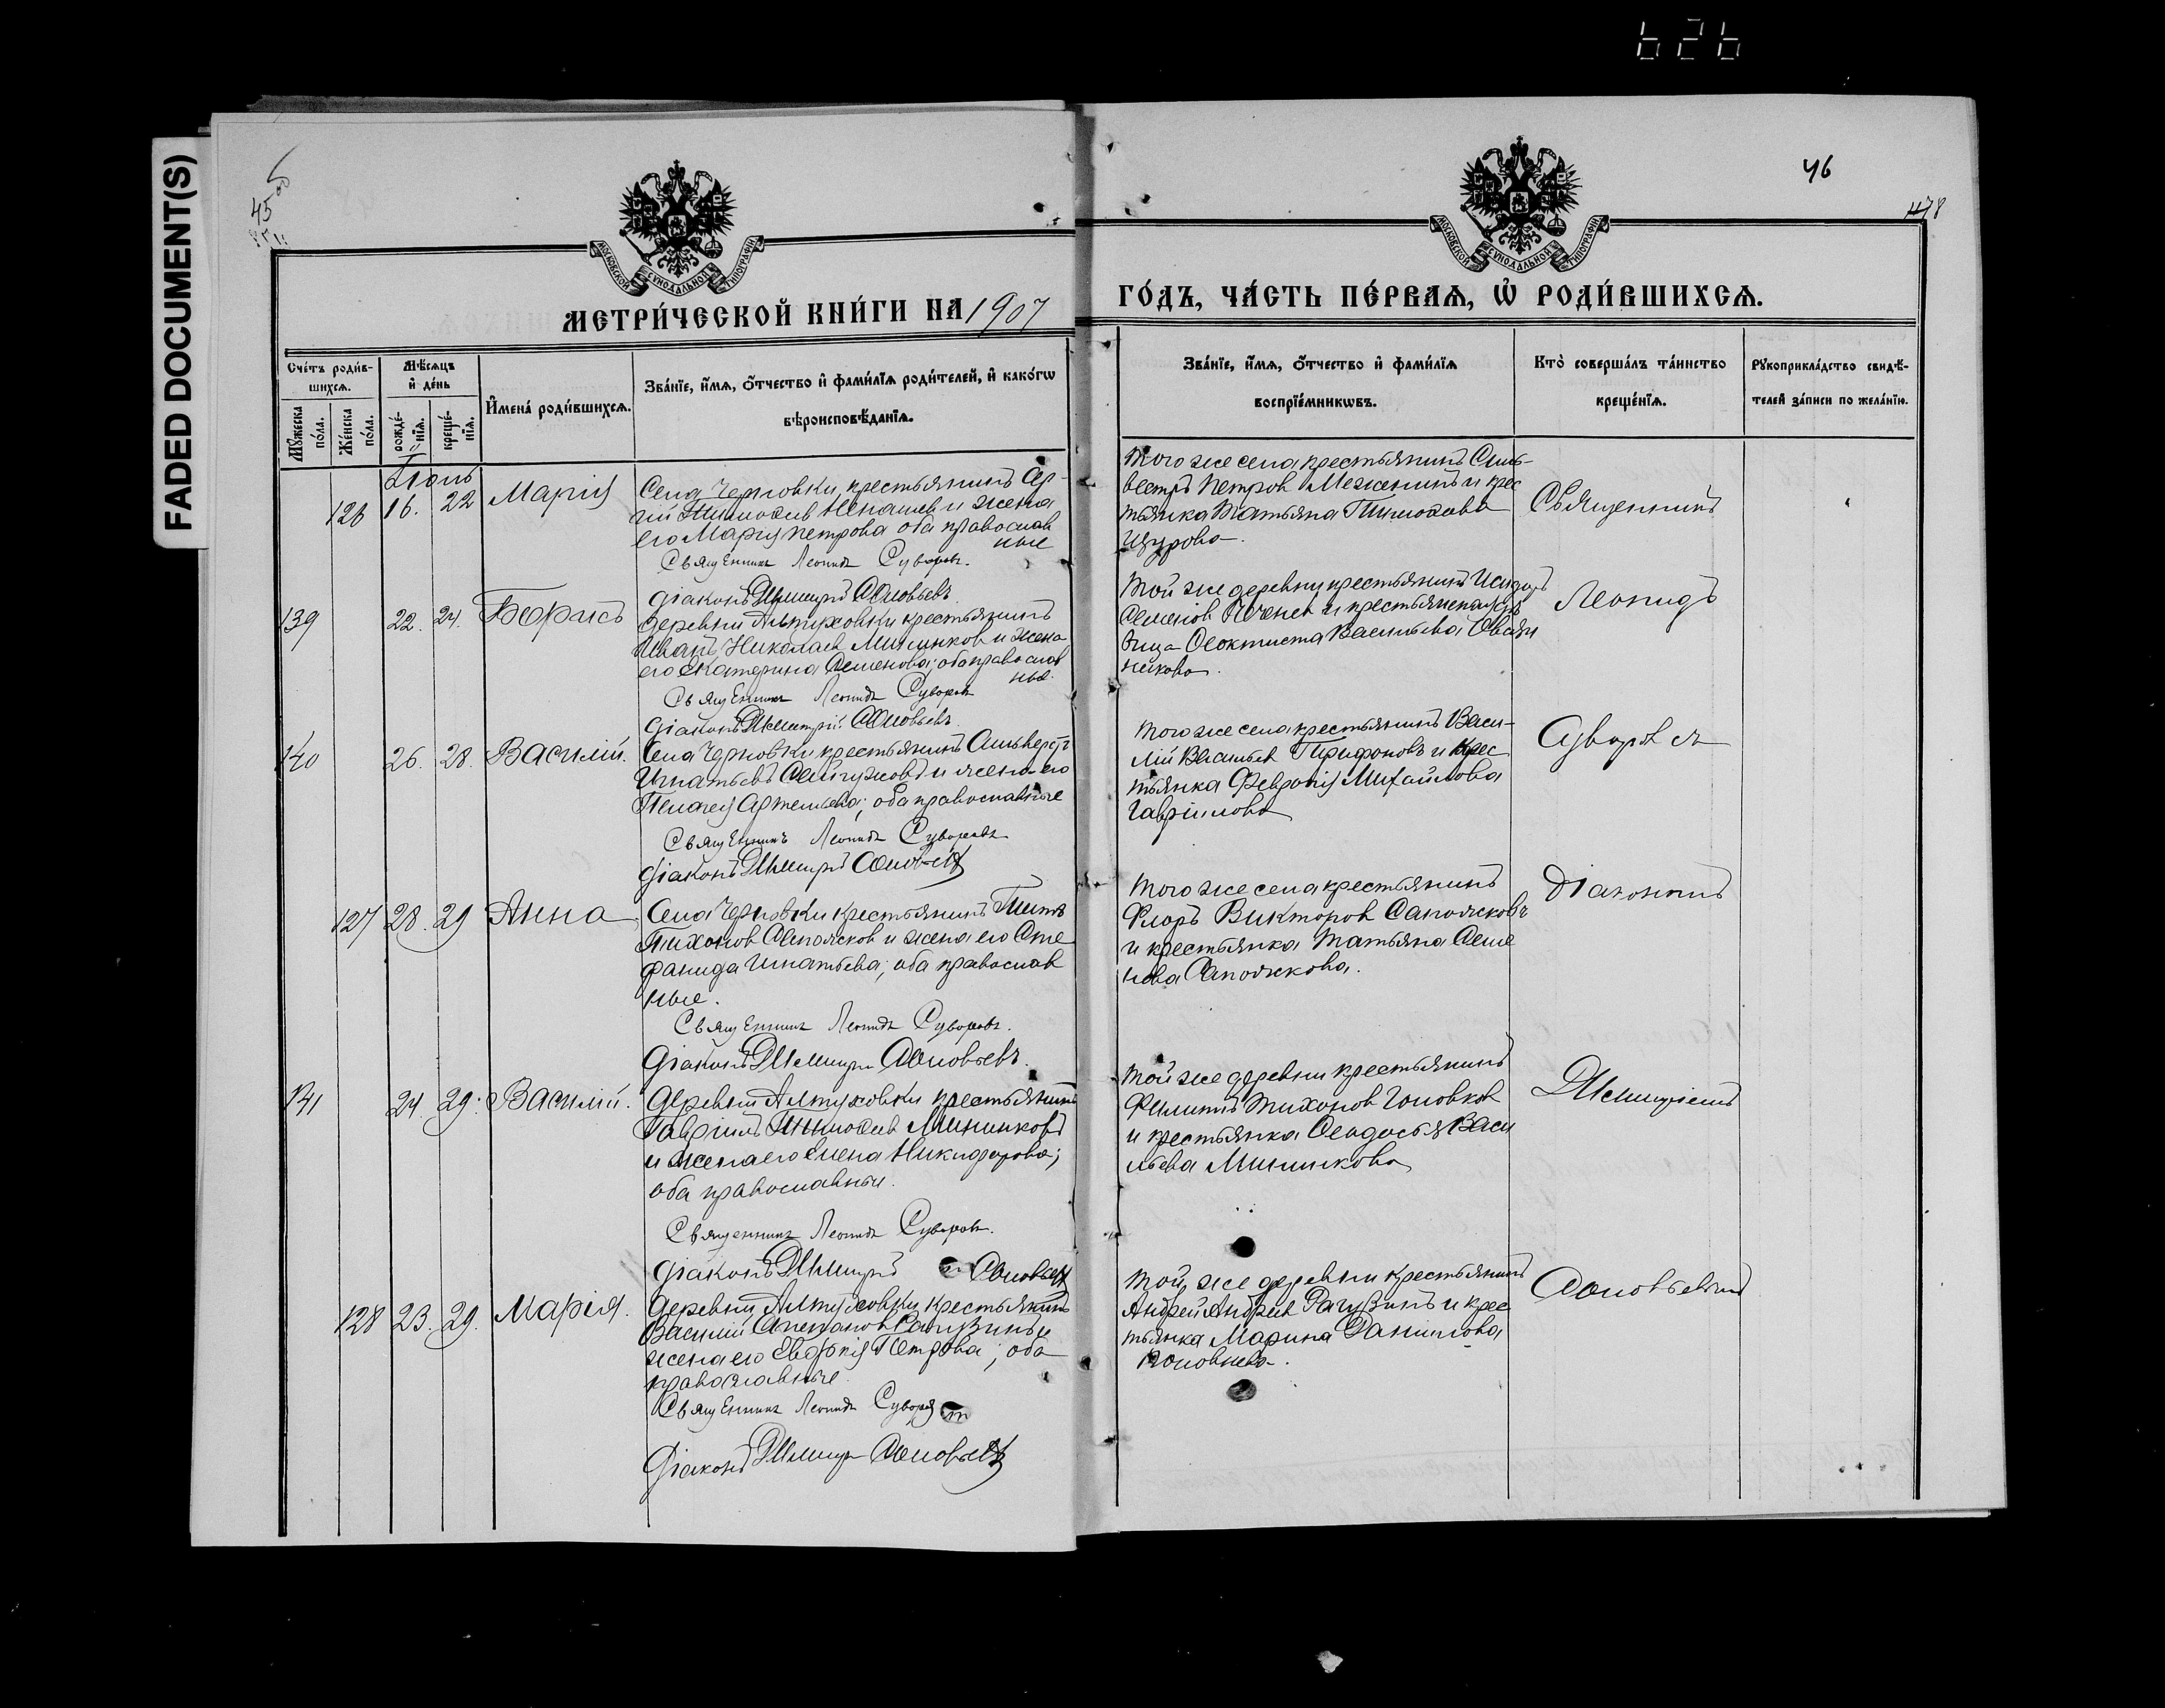 626
FADED DOCUMENT(S)
45 об
46
478
МОСКОВСКОЙ СУНОДАЛЬНОЙ ТИПОГРАФІИ
МОСКОВСКОЙ СУНОДАЛЬНОЙ ТИПОГРАФІИ
МЕТРИ́ЧЕСКОЙ КНИ́ГИ НА 1907
ГО́ДЪ, ЧА́СТЬ ПЕ́РВАѦ, Ѡ РОДИ́ВШИХСѦ.
Сче́тъ роди́в-
шихсѧ.
Мꙋ́жеска по́ла.
Же́нска по́ла.
Мѣ́сѧцъ
и҆ де́нь
рожде́-
нїѧ.
креще́-
нїѧ.
И҆мена̀ роди́вшихсѧ.
Зва́нїе, и҆́мѧ, ѻ҆́тчество и҆ фами́лїѧ роди́телей, и҆ како́гѡ
вѣроисповѣ́данїѧ.
Зва́нїе, и҆́мѧ, ѻ҆́тчество и҆ фами́лїѧ
воспрїе́мникѡвъ.
Кто̀ соверша́лъ та́инство
креще́нїѧ.
Рꙋкоприкла́дство свидѣ́-
телей за́писи по жела́нїю.
Іюль
126 16. 22 Марія
Села Черновки, крестьянинъ Сер-
гій Тимофеев Ненашев и жена
его Марія Петрова оба православ
ные
Священникъ Леонидъ Суворовъ.
діаконъ Дмитрій Соловьевъ
Того же села крестьянинъ Силь-
вестръ Петров Меженинъ и крес
тьянка Татьяна Тимофеева
Щурова.
Священникъ
139 22. 24. Борисъ
деревни Алтуховки крестьянинъ
Иванъ Николаев Мишинков и жена
его Екатерина Семенова; оба православ
ные.
Священникъ Леонидъ Суворовъ
діаконъ Дмитрій Соловьевъ
Той же деревни крестьянинъ Исидоръ
Семенов и крестьянская дѣ
вица Феоктиста Васильева Овсян
никова.
Леонидъ
140 26. 28. Василій.
Села Черновки крестьянинъ
Игнатьевъ и жена его
Артемьева; оба православные
Священникъ Леонидъ Суворовъ
діаконъ Дмитрій Соловьевъ
Того же села крестьянинъ Васи-
лій Васильев Трифоновъ и крес
тьянка Февронія Михайлова
Гаврилова
Суворовъ
127 28. 29 Анна
Села Черновки крестьянинъ Титъ
Тихонов Сапожков и жена его Сте
фанида Игнатьева; оба православ
ные.
Священникъ Леонидъ Суворовъ.
діаконъ Дмитрій Соловьевъ.
Того же села крестьянинъ
Флоръ Викторов Сапожковъ
и крестьянка Татьяна Семе
нова Сапожкова.
Діакономъ
141 24. 29. Василій.
деревни Алтуховки крестьянинъ
Гавріилъ Тимофеев Мишинковъ
и жена его Елена Никифорова;
оба православныи.
Священникъ Леонидъ Суворовъ.
діаконъ Дмитрій Соловьевъ
Той же деревни крестьянинъ
Филиппъ Тихонов Головков
и крестьянка Феодосья Васи
льева Мишинкова
Дмитріемъ
128 23. 29. Марія.
деревни Алтуховки крестьянинъ
Василій Степанов Рагузинъ и
жена его Евфронія Петрова; оба
православные
Священникъ Леонидъ Суворовъ
діаконъ Дмитрій Соловьевъ
Той же деревни крестьянинъ
Андрей Андреев Рагузинъ и крес
тьянка Марина Данилова
Соловьевымъ